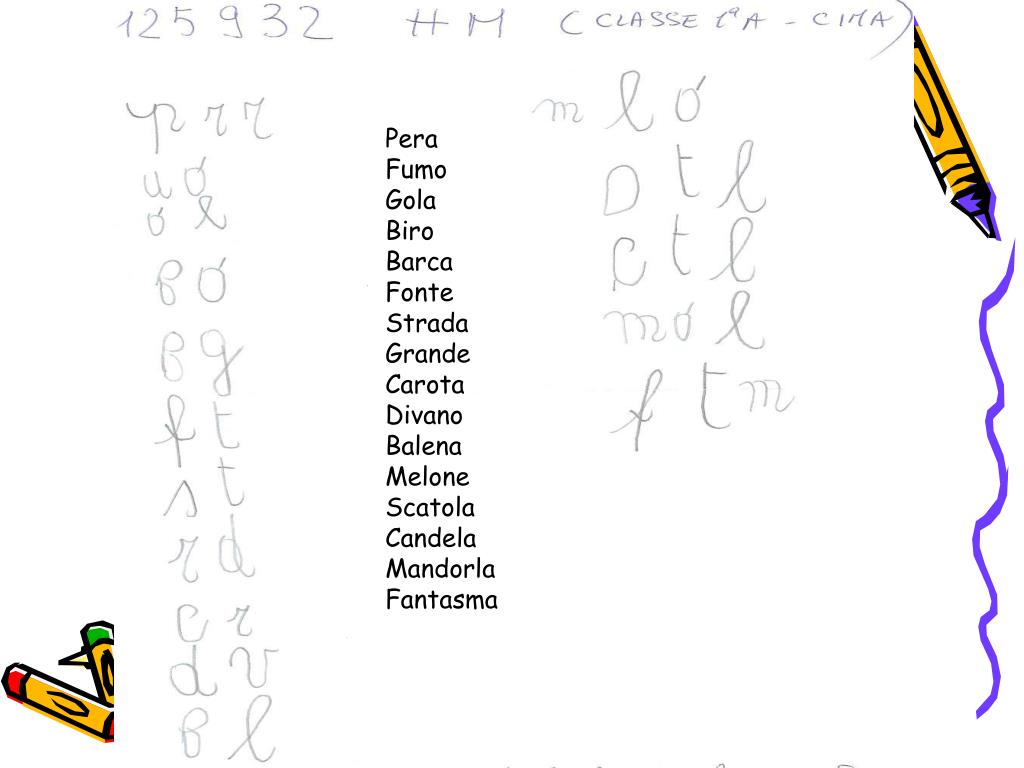 125932 H M (CLASSE 1ª A - CIMA)
p r r
u o
o l
B O
B g
f t
s t
r d
C r
d v
B l
Pera
Fumo
Gola
Biro
Barca
Fonte
Strada
Grande
Carota
Divano
Balena
Melone
Scatola
Candela
Mandorla
Fantasma
m l o
D t l
C t l
m o l
f t m